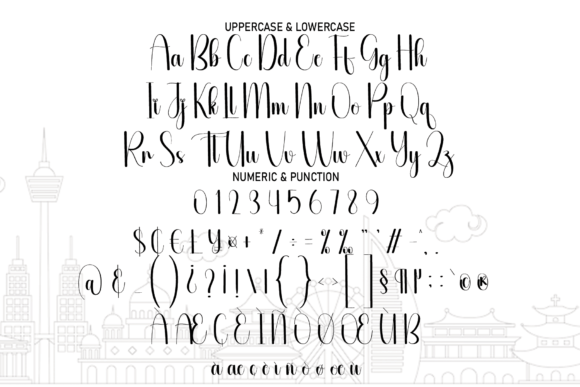 UPPERCASE & LOWERCASE
Aa Bb Cc Dd Ee Ff Gg Hh
Ii Jj Kk Ll Mm Nn Oo Pp Qq
Rr Ss Tt Uu Vv Ww Xx Yy Zz
NUMERIC & PUNCTION
0 1 2 3 4 5 6 7 8 9
$ ₵ € £ ¥ ¤ + * / ÷ = % ‰ " ' # – ^ , .
@ & ( ) ¿ ? ¡ ! \ | { } < > _ [ ] § ¶ µ : ; ` © ®
À Æ Ç È Ì Ñ Ò Ø Œ Ù ß
à æ ç è ì ñ ò ø œ ù